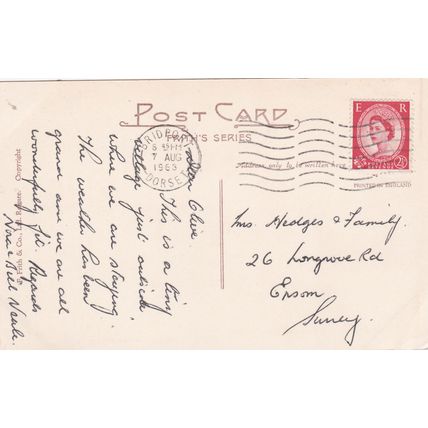 POST CARD
FRITH'S SERIES
BRIDPORT
7 AUG
DORSET
E R
2½
Address only to be written here
PRINTED IN ENGLAND
Frith & Co., Ltd. Reigate. Copyright
Dear Clive
This is a tiny
village just outside
where we are staying.
The weather has been
grand and we are all
wonderfully fit. Regards
Mrs. Hedges & Family.
26 Longrove Rd
Epsom
Surrey.